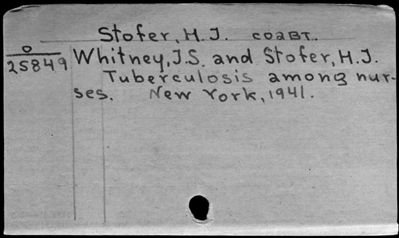 Stofer, H.J. соавт.
0
25849
Whitney, J.S. and Stofer, H.J.
Tuberculosis among nur-
ses. New York, 1941.